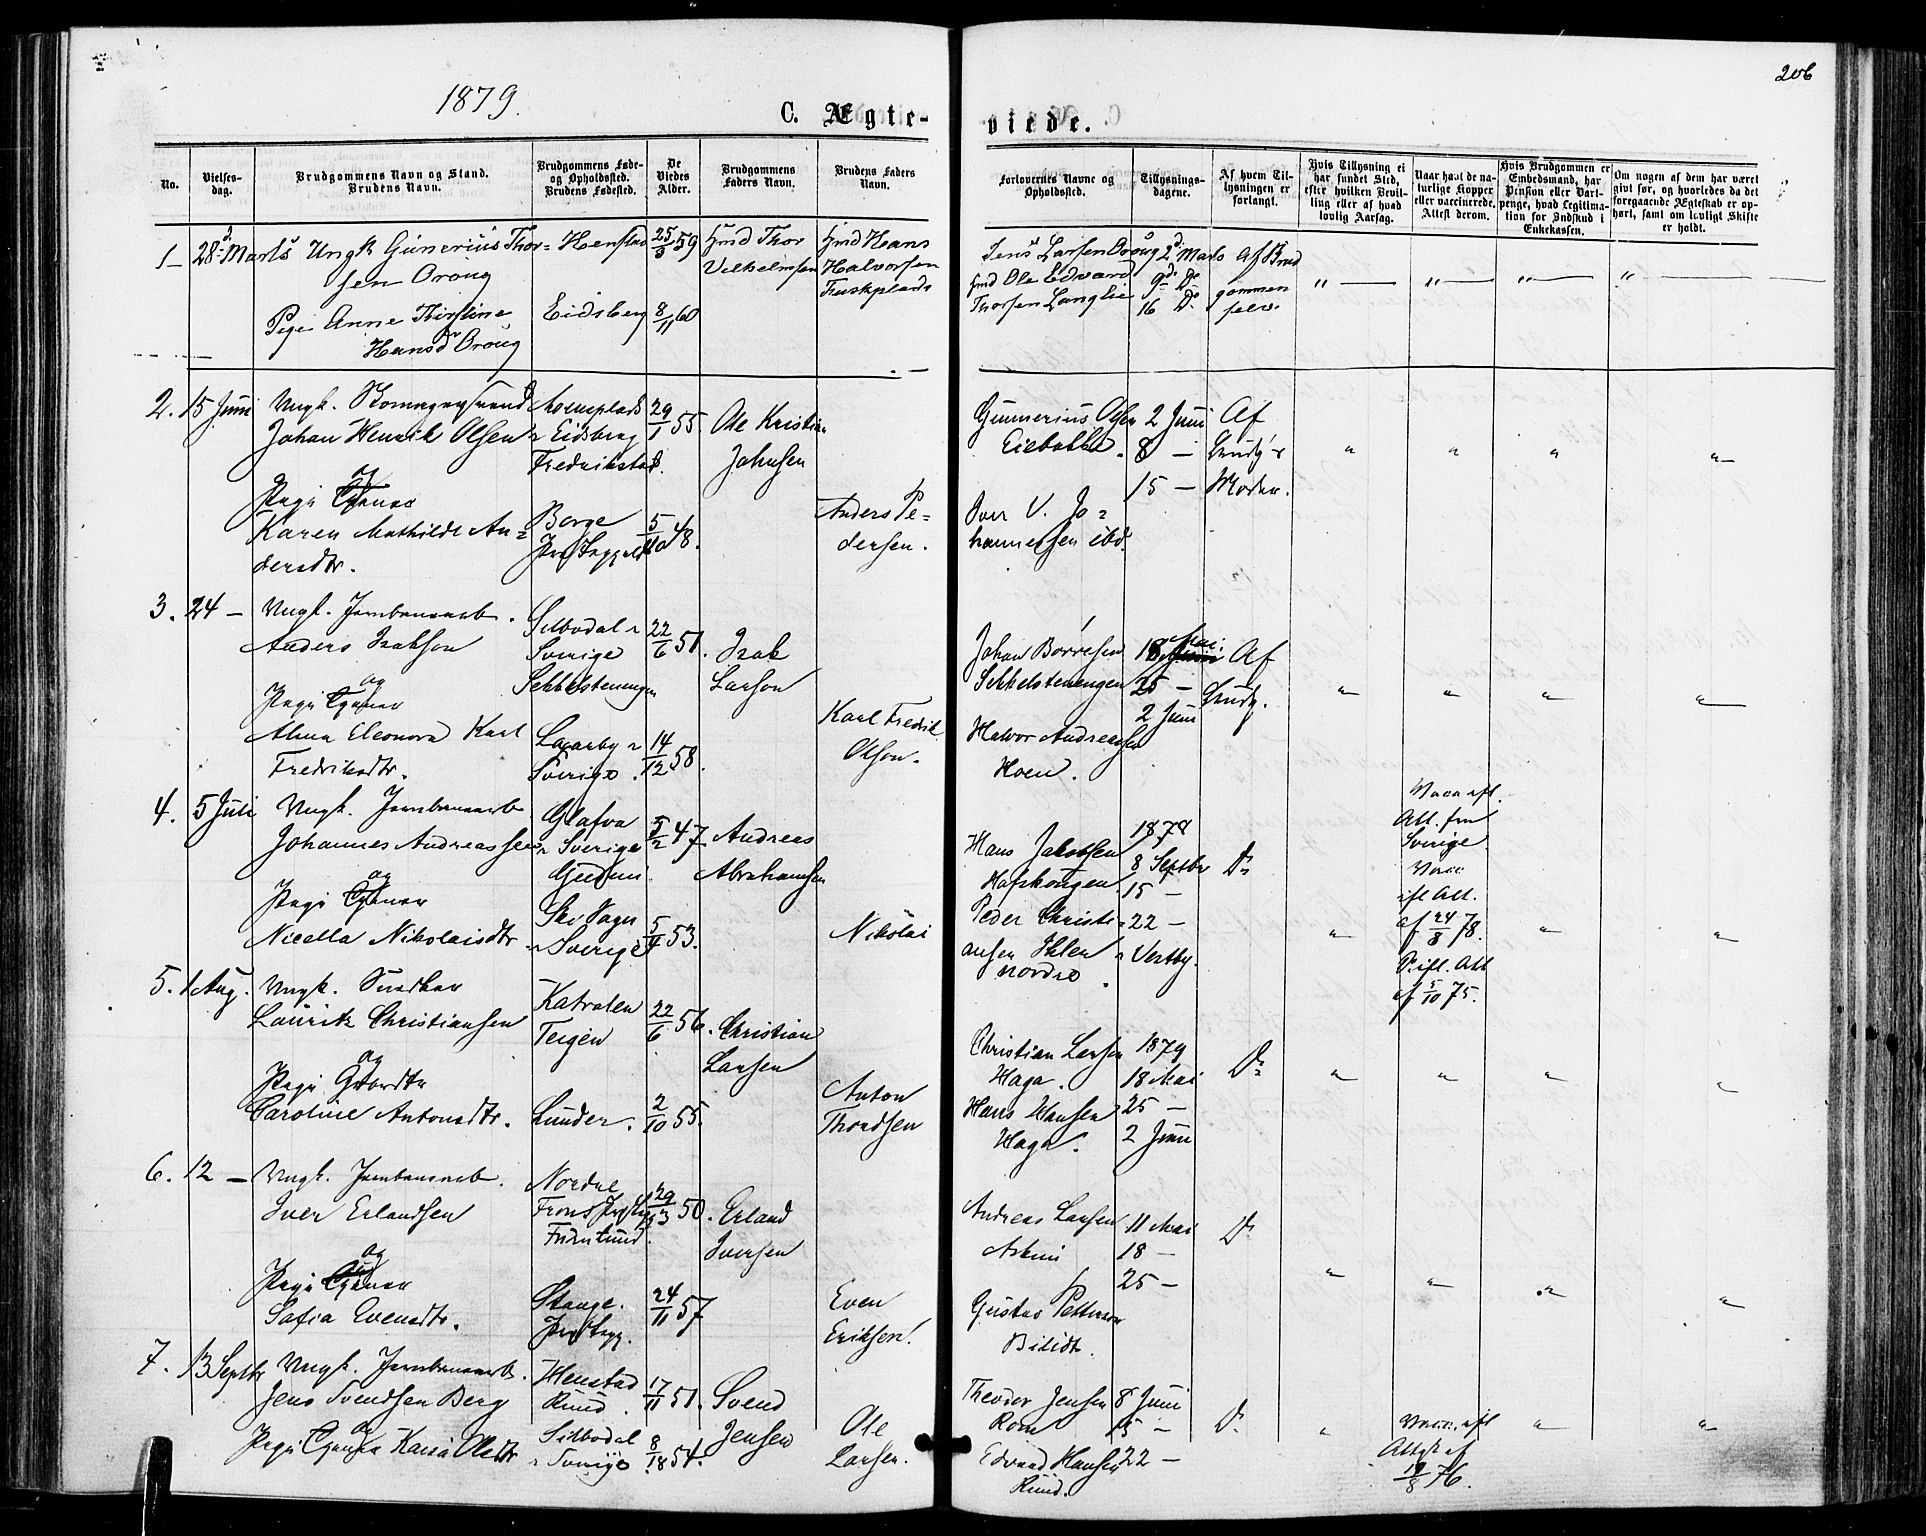 206
1879.
C. Ægte-
viede.
No.
Vielses-
dag.
Brudgommens Navn og Stand.
Brudens Navn.
Brudgommens Føde-
og Opholdssted.
Brudens Fødested.
De
Viedes
Alder.
Brudgommens
Faders Navn.
Brudens Faders
Navn.
Forlovernes Navne og
Opholdssted.
Tillysnings-
dagene.
Af hvem Til-
lysningen er
forlangt.
Hvis Tillysning ei
har fundet Sted,
efter hvilken Bevil-
ling eller af hvad
lovlig Aarsag.
Naar havt de na-
turlige Kopper
eller vaccinerede.
Attest derom.
Hvis Brudgommen er
Embedsmand, har
Pension eller Vart-
penge, hvad Legitima-
tion for Indskud i
Enkekassen.
Om nogen af dem har været
givt før, og hvorledes da det
foregaaende Ægteskab er op-
hørt, samt om lovligt Skifte
er holdt.
1 28d Marts Ungk Gunerius Thor-
sen Oroug
Henstad 25/3 59
Gmd Thor
Vilhelmsen
Gmd Hans
Halvorsen
Jens Larsen Oroug 2d Marts Af Brud
Gmd Ole Edvard 9d Do gommen
Thorsen Langlie 16 Do selv.
" " " "
Pige Anne Kirstine
Hansd Oroug
Eidsberg 8/11 60
2. 15 Juni Ungk.
Johan Henrik Olsen
Eidsberg
Fredrikstad.
29/1 55
Ole Kristian
Johnsen
Gunnerius Olsen 2 Juni Af
8 —
15 — Moder.
" " " "
og
Pige
Karen Mathilde An-
dersdtr.
Borge
5/10 48.
Anders Pe-
dersen.
Iver V. Jo-
hannessen ibd.
3. 24 — Ungk. Jernbanearb.
Anders Isakson
Silbodal
Sverige
22/6 51.
Isak
Larson
Johan Børresen 18 Mai Af
Sekkelstenengen 25 —
2 Juni
" " " "
og
Pige
Alma Eleonora Karl
Fredriksdtr.
Sverige. 14/12 58.
Karl Fredrik
Olson.
Halvor Andreassen
Hoen.
4. 5 Juli Ungk. Jernbanearb
Johannes Andreassen
Glafva
Sverige
5/2 47.
Andreas
Abrahamsen
Hans Jakobsen 1878
8 Septbr Do
15 —
Peder Christi- 22 —
ansen Ihlen Vestby.
nordre
Att. fra
Sverige.
ifl. Att.
af 24/8 78.
" " "
og
Pige
Nicolla Nikolaisdtr.
Sverige 5/4 53.
Nikolai
5. 1 Aug. Ungk. Snedker
Lauritz Christiansen
Katralen
Teigen
22/6 56.
Christian
Larsen
ifl. Att
af 5/10 75.
Christian Larsen 1879
Haga. 18 Mai Do
Hans Hansen 25 —
Haga. 2 Juni
" " " "
og
Pige
Caroline Antonsdtr.
Lunder. 2/10 55.
Anton
Thordsen
6. 12 — Ungk. Jernbanearb.
Iver Erlandsen
Nordre
Frons
29/3 50.
Erland
Iversen
Andreas Larsen 11 Mai Do
Askim 18 —
25 —
" " " "
og
Pige
Sofia Evensdtr.
Stange. 24/11 57
Even
Eriksen.
Gustav Petterson
7. 13 Septbr Ungk. Jernbanearb.
Jens Svendsen Berg
Henstad
Ruud.
17/11 51.
Svend
Jensen
Theodor Jensen 8 Juni
Rom 15 — Do
Edvard Hansen 22 —
Ruud.
" Vacc. ifl
Att. af
19/8 76.
" "
og
Pige Karia Olsdtr
Silbodal
Sverige
54.
Ole
Larsen.